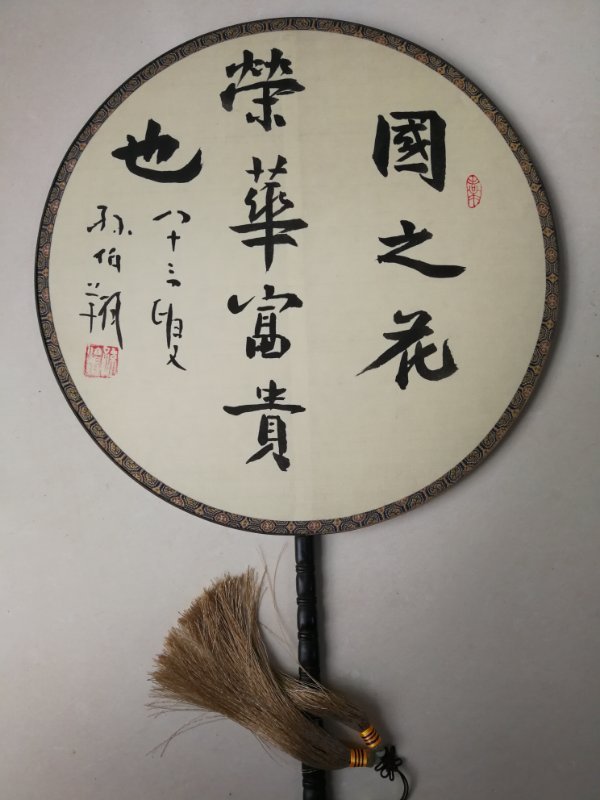 國之花
榮華富貴
也
八十三叟
孫伯翔